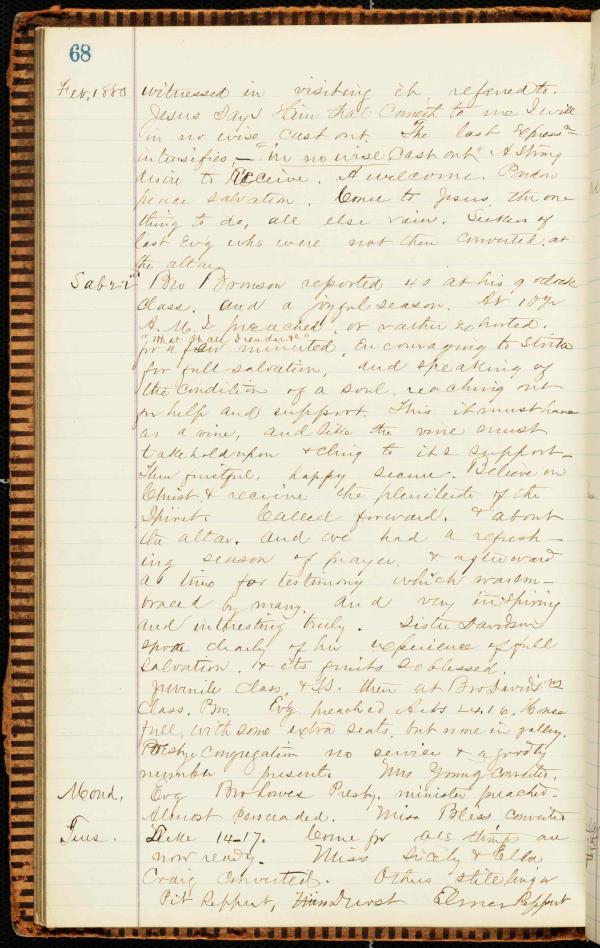 68
Feb, 1880 witnessed in visiting it referred to.
Jesus says Him that cometh to me I will
in no wise cast out. The last Expressn
intensifies, — "in no wise cast out" A strong
desire to Receive. A welcome. Pardon
peace salvation. Come to Jesus, the one
thing to do, all else vain. Seekers of
last Evg who were not then converted, at
the altar
Sab 22" Bro Bronson reported 40 at his 9 oclock
Class. and a joyful season. At 10 1/2
A. M. I preached, or rather exhorted.
"What shall I render &c"
for a few minutes, Encouraging to strive
for full salvation, and speaking of
the condition of a soul, reaching out
for help and support. This it must have
as a vine, and like the vine must
take hold upon & cling to its support—
Then fruitful, happy secure. Believe on
Christ & receive the plenitude of the
Spirit. Called forward, & about
the altar. and we had a refresh—
ing season of prayer. & afterward
a time for testimony which was em—
braced by many, and very inspiring
and interesting truly. Sister Davidson
spoke clearly of her experience of full
salvation. & its fruits so blessed.
Juvenile Class, & S.S. then at Bro Davids
Class. Evg preached Acts 24.16. House
full, with some extra seats, but none in gallery.
Presby. Congregation no service & a goodly
number present. Mrs Young converted,
Mond, Evg Bro Lowes Presby. minister preached.
Almost Persuaded. Miss Bless converted
Tues. Luke 14-17. Come for all things are
now ready. Miss Sicily & Ella
Craig Converted. Others still linger
Pit Reppert, Durst Elmer Reppert